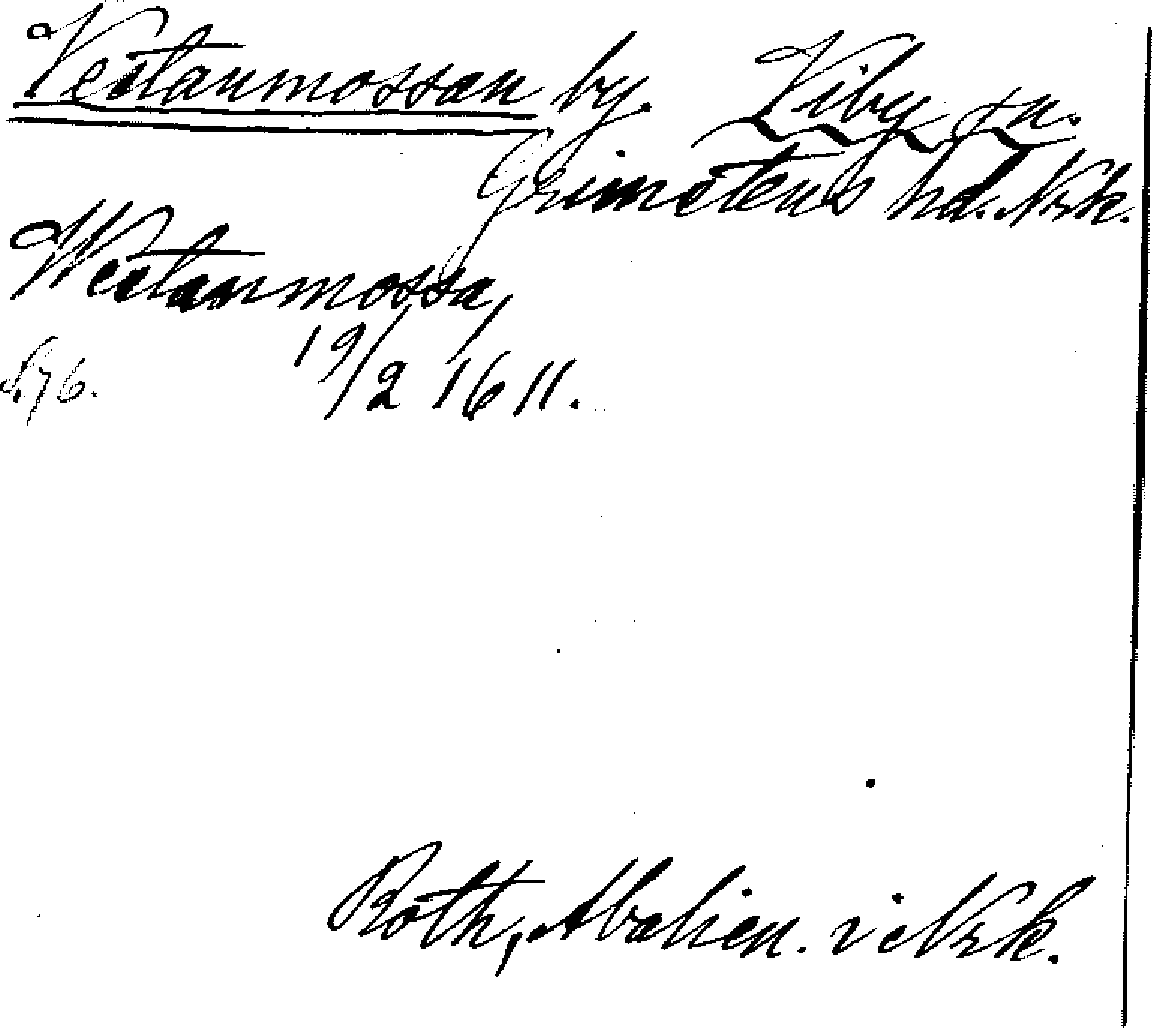 Vestanmossan by. Viby sn.
Grimstens hd. Nrk.
Westanmossa,
19/2 1611.
s. 76.
Roth, Abalien. i Nrk.